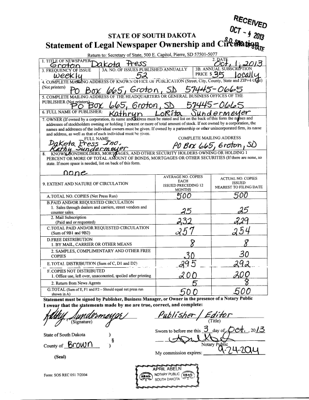 RECEIVED
OCT - 4 2013
STATE OF SOUTH DAKOTA
Statement of Legal Newspaper Ownership and Circulation
Return to: Secretary of State, 500 E. Capitol, Pierre, SD 57501-5077
1. TITLE OF NEWSPAPER
Groton Dakota Press
2. DATE
Oct 1, 2013
3. FREQUENCY OF ISSUE
weekly
3A. NO. OF ISSUES PUBLISHED ANNUALLY
52
3B. ANNUAL SUBSCRIPTION PRICE $ 35 locally
4. COMPLETE MAILING ADDRESS OF KNOWN OFFICE OF PUBLICATION (Street, City, County, State and ZIP+4 Code)
(Not printers)
PO Box 665, Groton, SD 57445-0665
5. COMPLETE MAILING ADDRESS OF THE HEADQUARTERS OR GENERAL BUSINESS OFFICES OF THE
PUBLISHER (Not printers)
PO Box 665, Groton, SD 57445-0665
6. FULL NAME OF PUBLISHER:
Kathryn LoRita Sundermeyer
7. OWNER (If owned by a corporation, its name and address must be stated and also the names and
addresses of stockholders owning or holding 1 percent or more of total amount of stock. If not owned by a corporation, the
names and addresses of the individual owners must be given. If owned by a partnership or other unincorporated firm, its name
and address, as well as that of each individual must be given.
FULL NAME
COMPLETE MAILING ADDRESS
Dakota Press Inc.
PO Box 665, Groton, SD
Kathy Sundermeyer
8. KNOWN BONDHOLDERS, MORTGAGES, AND OTHER SECURITY HOLDERS OWNING OR HOLDING 1
PERCENT OR MORE OF TOTAL AMOUNT OF BONDS, MORTGAGES OR OTHER SECURITIES (If there are none, so
state. If more space is needed, list on back of this form.
none
9. EXTENT AND NATURE OF CIRCULATION
AVERAGE NO. COPIES EACH ISSUED PRECEDING 12 MONTHS
ACTUAL NO. COPIES ISSUED NEAREST TO FILING DATE
A. TOTAL NO. COPIES (Net Press Run) 500 500
B. PAID AND/OR REQUESTED CIRCULATION
1. Sales through dealers and carriers, street vendors and
counter sales 25 25
2. Mail Subscription
(Paid and or requested) 232 229
C. TOTAL PAID AND/OR REQUESTED CIRCULATION
(Sum of 9B1 and 9B2) 257 254
D. FREE DISTRIBUTION
1. BY MAIL, CARRIER OR OTHER MEANS 8 8
2. SAMPLES, COMPLIMENTARY AND OTHER FREE
COPIES 30 30
E. TOTAL DISTRIBUTION (Sum of C, D1 and D2) 295 292
F. COPIES NOT DISTRIBUTED
1. Office use, left over, unaccounted, spoiled after printing 200 200
2. Return from News Agents 5 8
G. TOTAL (Sum of E, F1 and F2 - Should equal net press run
shown in A) 500 500
Statement must be signed by Publisher, Business Manager, or Owner in the presence of a Notary Public
I swear that the statements made by me are true, correct, and complete:
Kathy Sundermeyer
(Signature)
Publisher / Editor
(Title)
State of South Dakota )
County of Brown )
§
(Seal)
Sworn to before me this 3 day of Oct, 2013
Notary Public
My commission expires: 9-24-2014
Form: SOS REC 051 7/2004
APRIL ABELN
NOTARY PUBLIC
SOUTH DAKOTA
SEAL